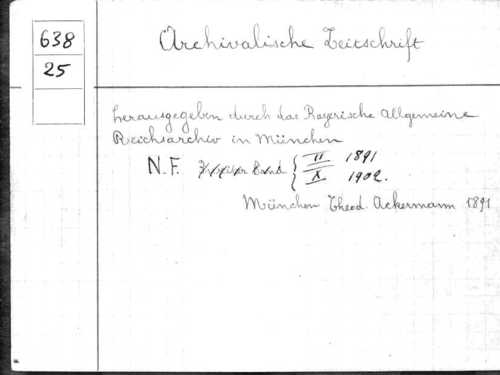 638
25
Archivalische Zeitschrift
herausgegeben durch das Bayerische Allgemeine
Reichsarchiv in München
N.F. { II 1891
X 1902.
München Theod. Ackermann 1891